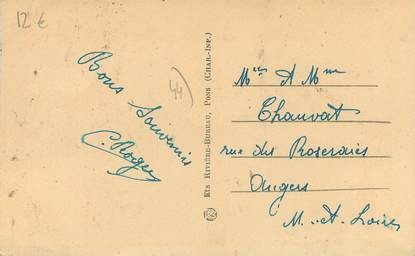 12 €
44
Bons Souvenirs
C. Roger
Ets RIVIÈRE-BUREAU, PONS (CHAR.-INF.)
Mrs et Mme
Chauvat
rue des Roseraies
Angers
M.-et-Loire